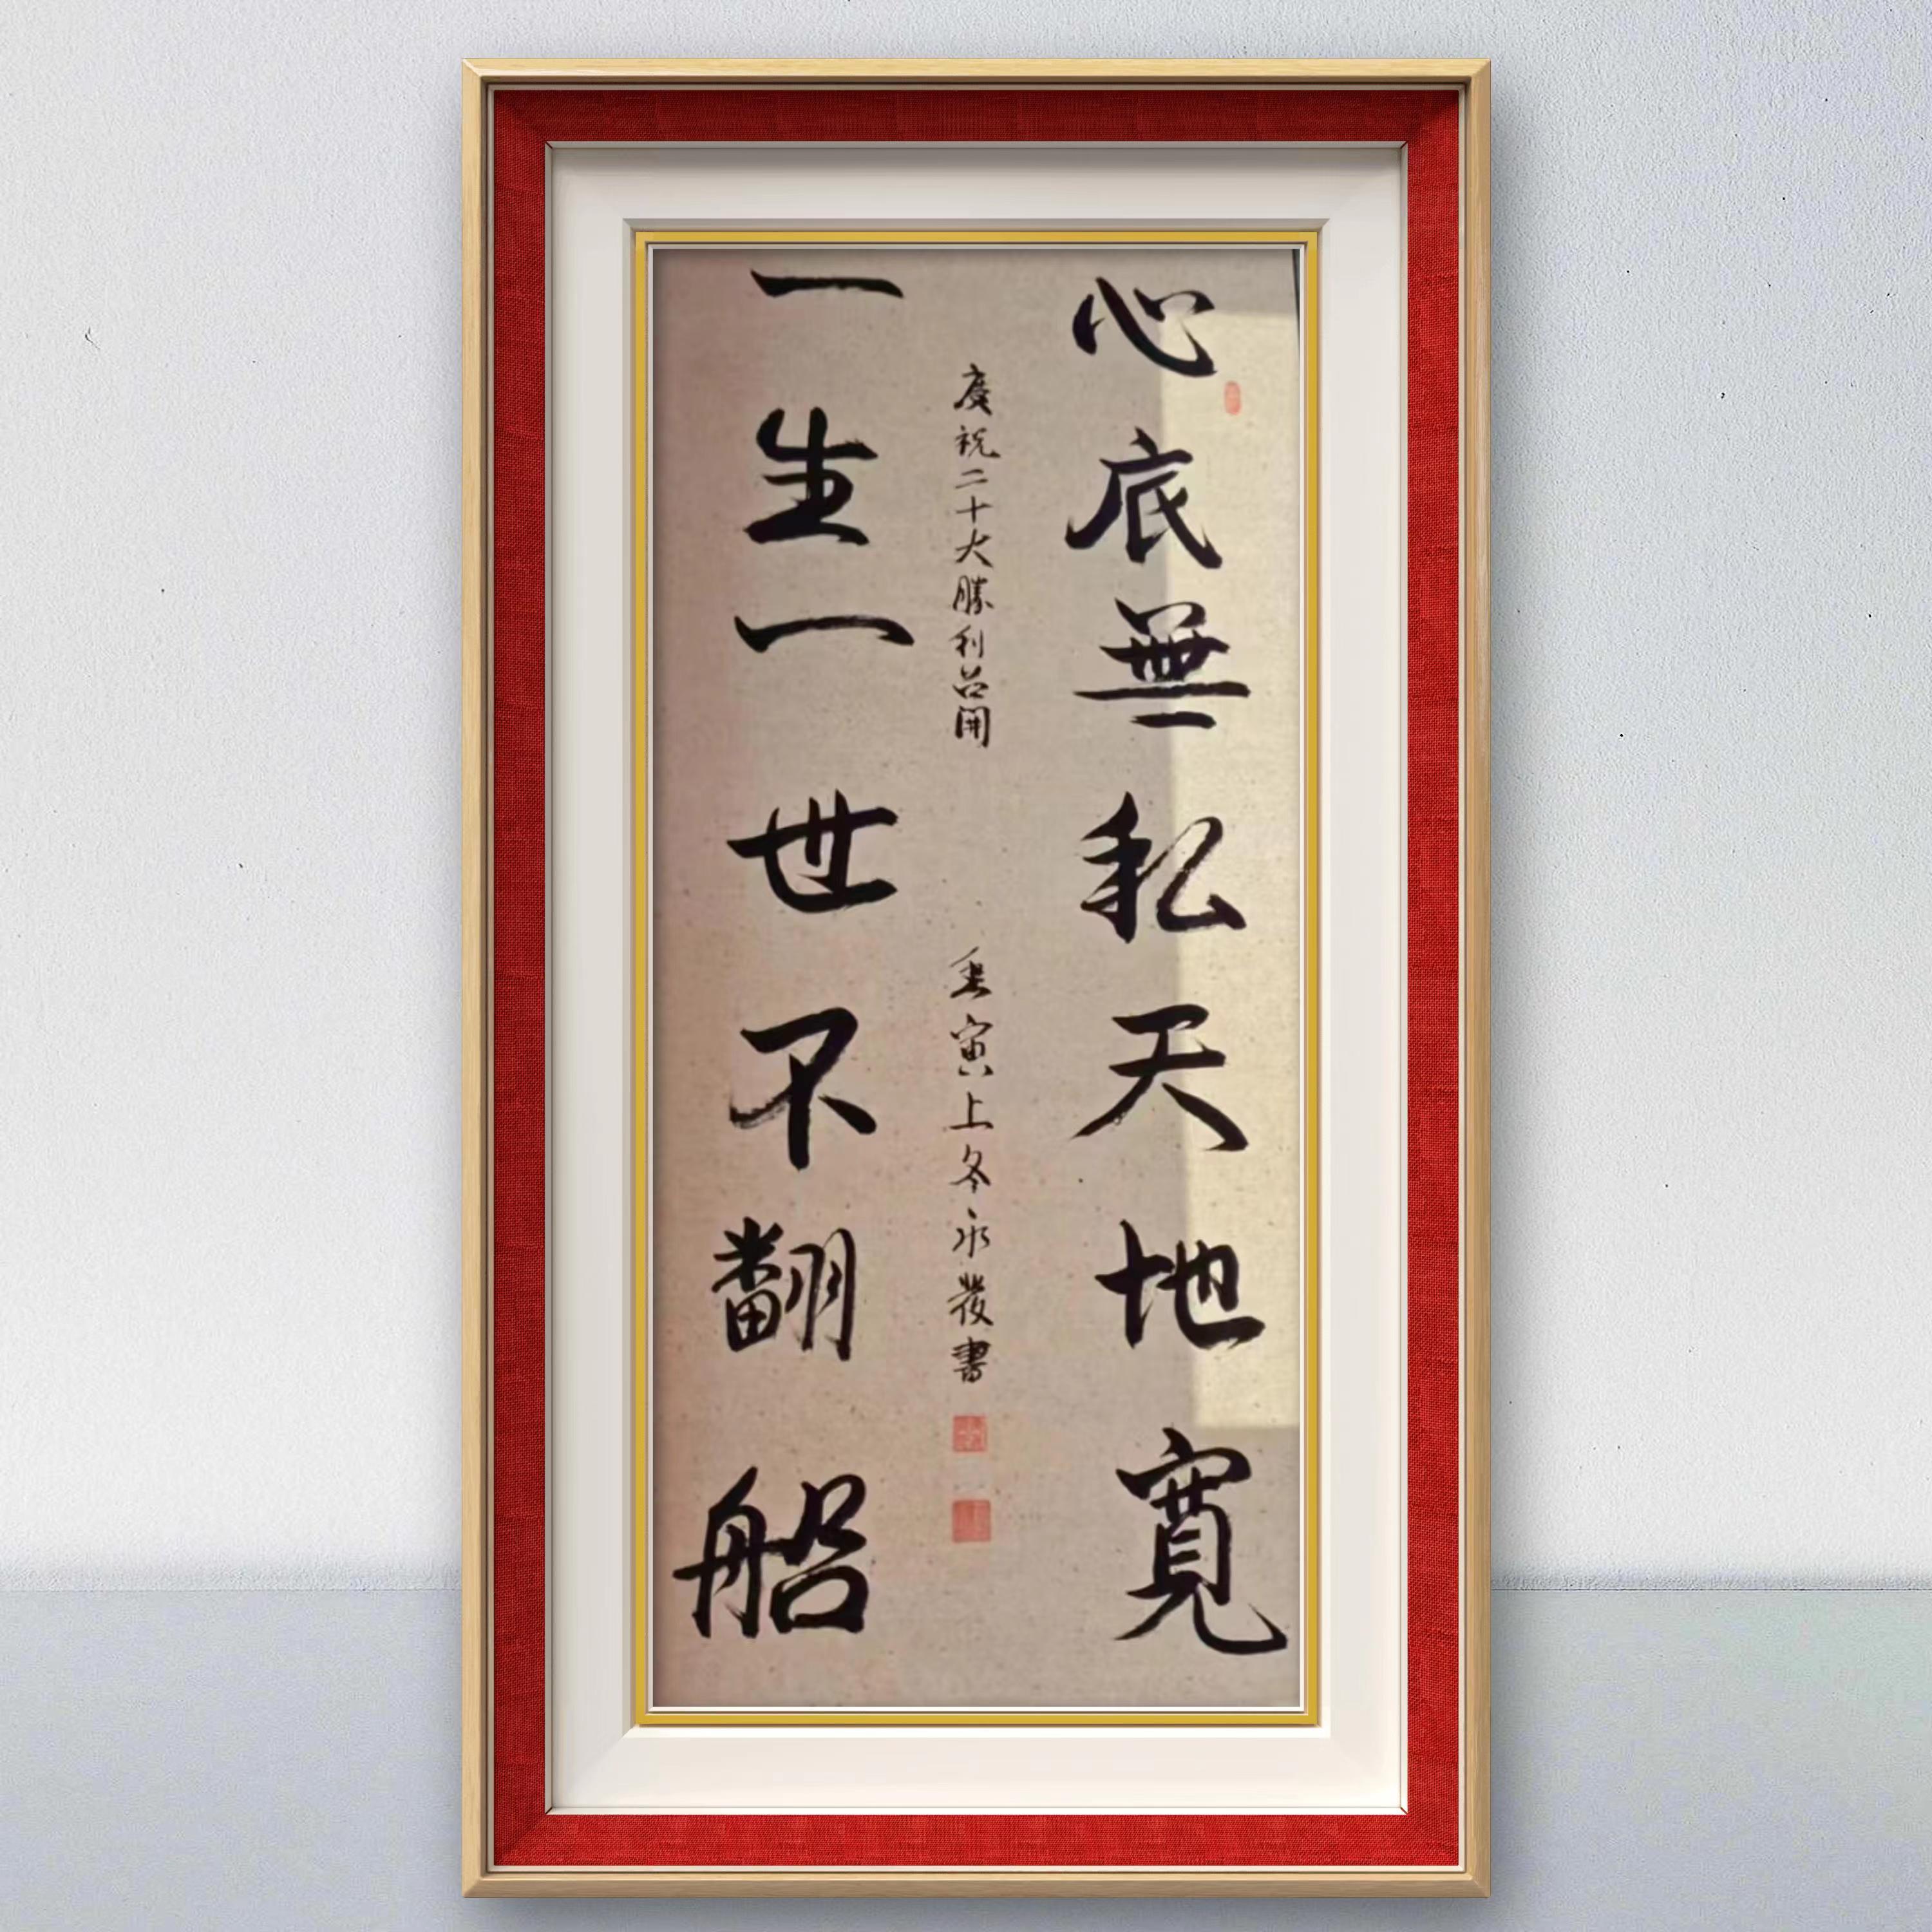 心底無私天地寬
慶祝二十大勝利召開
壬寅上冬永發書
一生一世不翻船